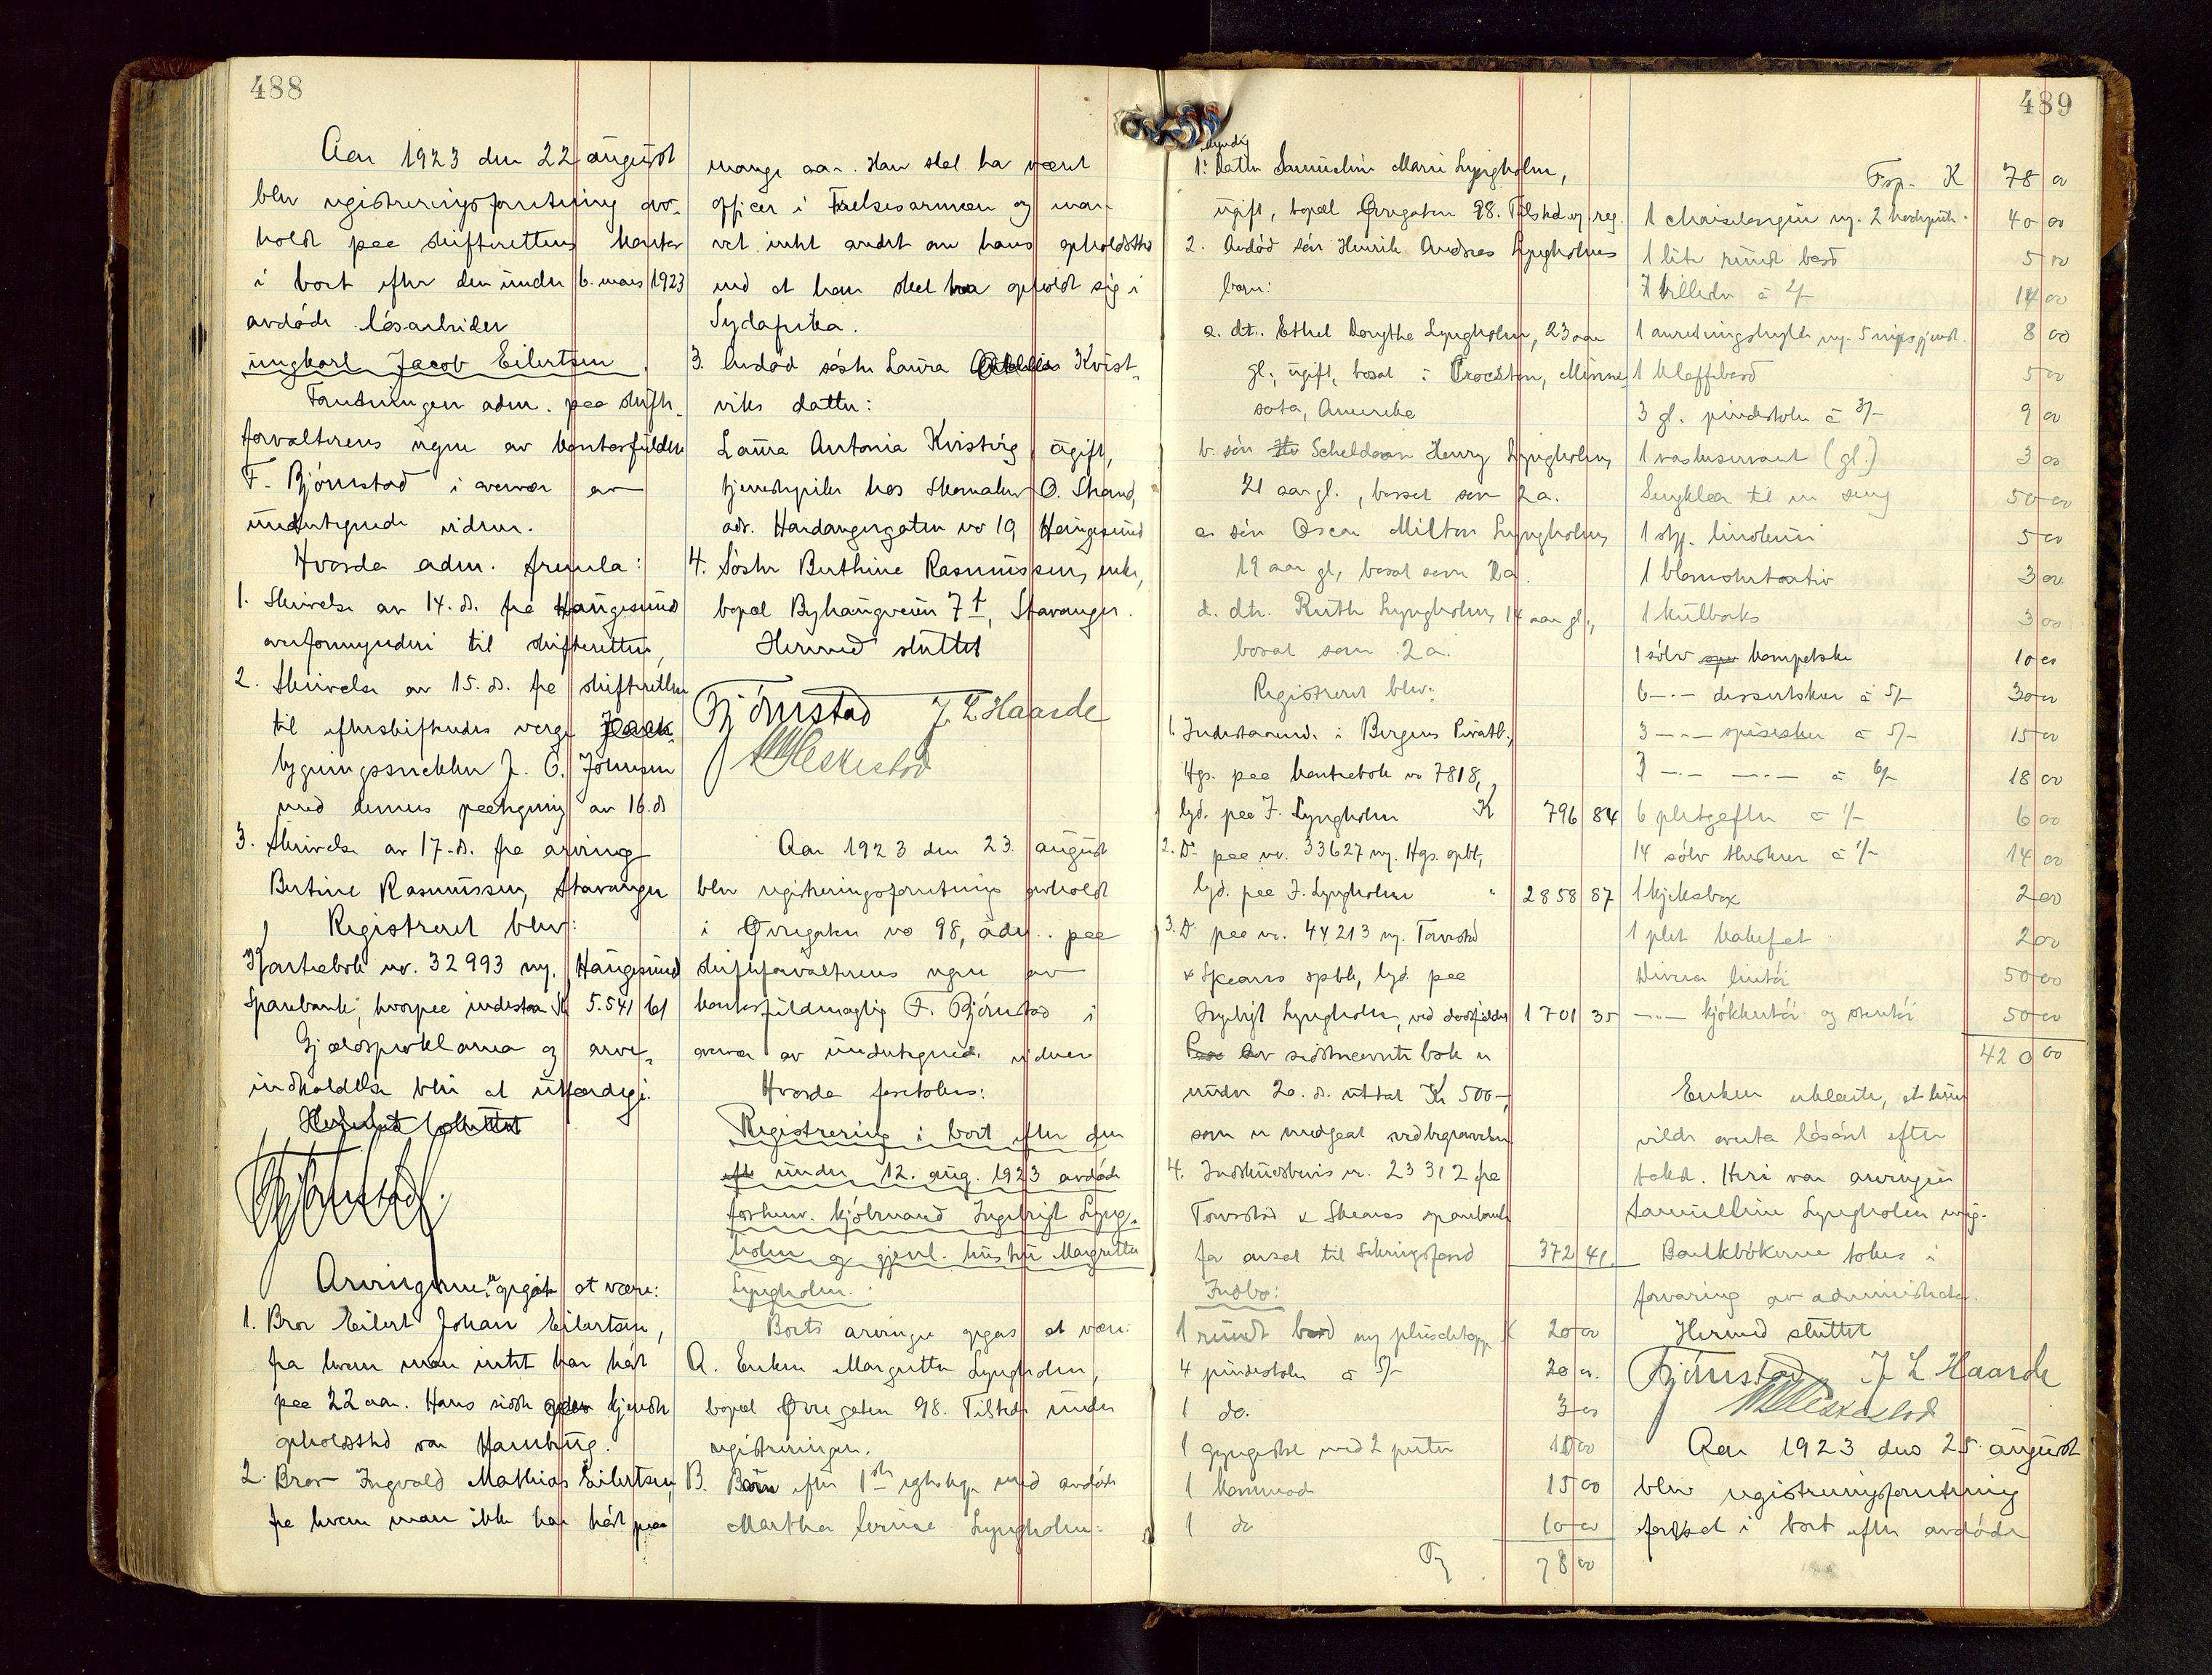 488
Aar 1923 den 22 august
blev registreringsforretning av-
holdt paa skifterettens kontor
i boet efter den under 6. mars 1923
avdøde løsarbeider
ungkarl Jacob Eilertsen.
Forretningen adm. paa skifte-
forvalterens vegne av kontorfuldm.
F. Bjørnstad i overvær av
undertegnede vidner.
Hvorda adm. fremla:
1. Skrivelse av 14. ds. fra Haugesund
overformynderi til skifteretten,
2. Skrivelse av 15. ds. fra skifteretten
til
bygningssnekker J. C. Johnsen
med dennes paategning av 16. ds
3. Skrivelse av 17. ds. fra arving
Bertine Rasmussen, Stavanger
Registreret blev:
Kontrabok nr. 32993 m. Haugesund
Sparebank, hvorpaa indestaar Kr 5.541 61
Gjældsproklama og arve-
indkaldelse blir at utfærdige.
Hermed sluttet
FBjørnstad.
Arvingerne er opgit at være:
1. Bror Eilert Johan Eilertsen,
fra hvem man intet har hørt
paa 22 aar. Hans sidste kjendte
opholdssted var Hamburg.
2. Bror Ingvald Mathias Eilertsen,
fra hvem man ikke har hørt paa
mange aar. Han skal ha været
officer i Frelsesarmeen og man
vet intet andet om hans opholdssted
end at han skal ha opholdt sig i
Sydafrika.
3. Avdød søster Laura Kvist-
viks datter:
Laura Antonia Kvistvig, ugift,
tjenestepike hos Skomaker O. Strand,
adr. Hardangergaten no 19, Haugesund
4. Søster Berthine Rasmussen, enke,
bopæl Byhaugveien 7 f, Stavanger.
Hermed sluttet
FBjørnstad J. L Haarde
Aar 1923 den 23. august
blev registreringsforretning avholdt
i Øvregaten no 98, adm. paa
skifteforvalterens vegne av
kontorfuldmægtig F. Bjørnstad i
overvær av undertegnede vidner
Hvorda foretokes:
Registrering i boet efter den
under 12. aug. 1923 avdøde
forhenv. kjøbmand Ingebrigt Lyng-
holm og gjenl. hustru Margrethe
Lyngholm.
Boets arvinger opgas at være:
A. Enken Margrethe Lyngholm,
bopæl Øvregaten 98. Tilstede under
registreringen.
B. Barn efter 1ste egteskap med avdøde
Martha Serine Lyngholm:
489
myndig
1. Datter Samueline Marie Lyngholm,
ugift, bopæl Øvregaten 98. Tilstede v. reg.
2. Avdød søn Henrik Andreas Lyngholms
barn:
a. dtr. Ethel Dorythe Lyngholm, 23 aar
gl., ugift, bosat i Crookston, Minne-
sota, Amerika
b. søn Scheldean Henry Lyngholm,
21 aar gl., bosat som 2a.
c. søn Oscar Milton Lyngholm,
19 aar gl, bosat som 2a.
d. dtr. Ruth Lyngholm, 14 aar gl.,
bosat som 2a.
Registreret blev:
1. Indestaaende i Bergens Privatb.,
Hgs. paa kontrabok no 7818,
lyd. paa I. Lyngholm K 796 84
2. Do paa nr. 33627 m. Hgs. spbk,
lyd. paa I. Lyngholm " 2858 87
3. Do paa nr. 44213 m. Torvestad
& Skeanes spbk, lyd. paa
Ingebrigt Lyngholm, ved dødsfaldet 1701 35
sidstnævnte bok er
under 20. ds. uttat Kr 500-,
som er medgaat ved begravelsen
4. Indskudsbevis nr. 23312 fra
Torvestad & Skeanes sparebank
for avsat til Sikringsfond 372 41.
Indbo:
1 rundt bord m plüschtæppe K 20 00
4 pindestoler à 5/- 20 00.
1 do. 3 00
1 gyngestol med 2 puter 10 00
1 kommode 15 00
1 do 10 00
Tr. 78 00
Tsp. K 78 00
1 chaiselongue m. 2 40 00
1 lite rundt bord 5 00
7 billeder à 2/- 14 00
1 anretningshylde m. 5 nipsgjenst. 8 00
1 klaffebord 5 00
3 gl. pindestoler à 3/- 9 00
1 vaskeservant (gl.) 3 00
Sengklær til en seng 50 00
1 stk. linoleum 5 00
1 blomsterstativ 3 00
1 kulboks 3 00
1 sølv kompotske 10 00
6 -"- dessertskeer à 5/- 30 00
3 -"- spiseskeer à 5/- 15 00
3 -"- -"- à 6/- 18 00
6 pletgafler à 1/- 6 00
14 sølv theskeer à 1/- 14 00
1 kjeksbox 2 00
1 plet kakefat 2 00
Diverse lintøi 50 00
-"- kjøkkentøi og stentøi 50 00
420 00
Enken erklærte, at hun
vilde overta løsøret efter
takst. Heri var arvingen
Samueline Lyngholm enig.
Bankbøkerne tokes i
forvaring av administrator.
Hermed sluttet
FBjørnstad J L Haarde
Aar 1923 den 25. august
blev registreringsforretning
foretat i boet efter avdøde